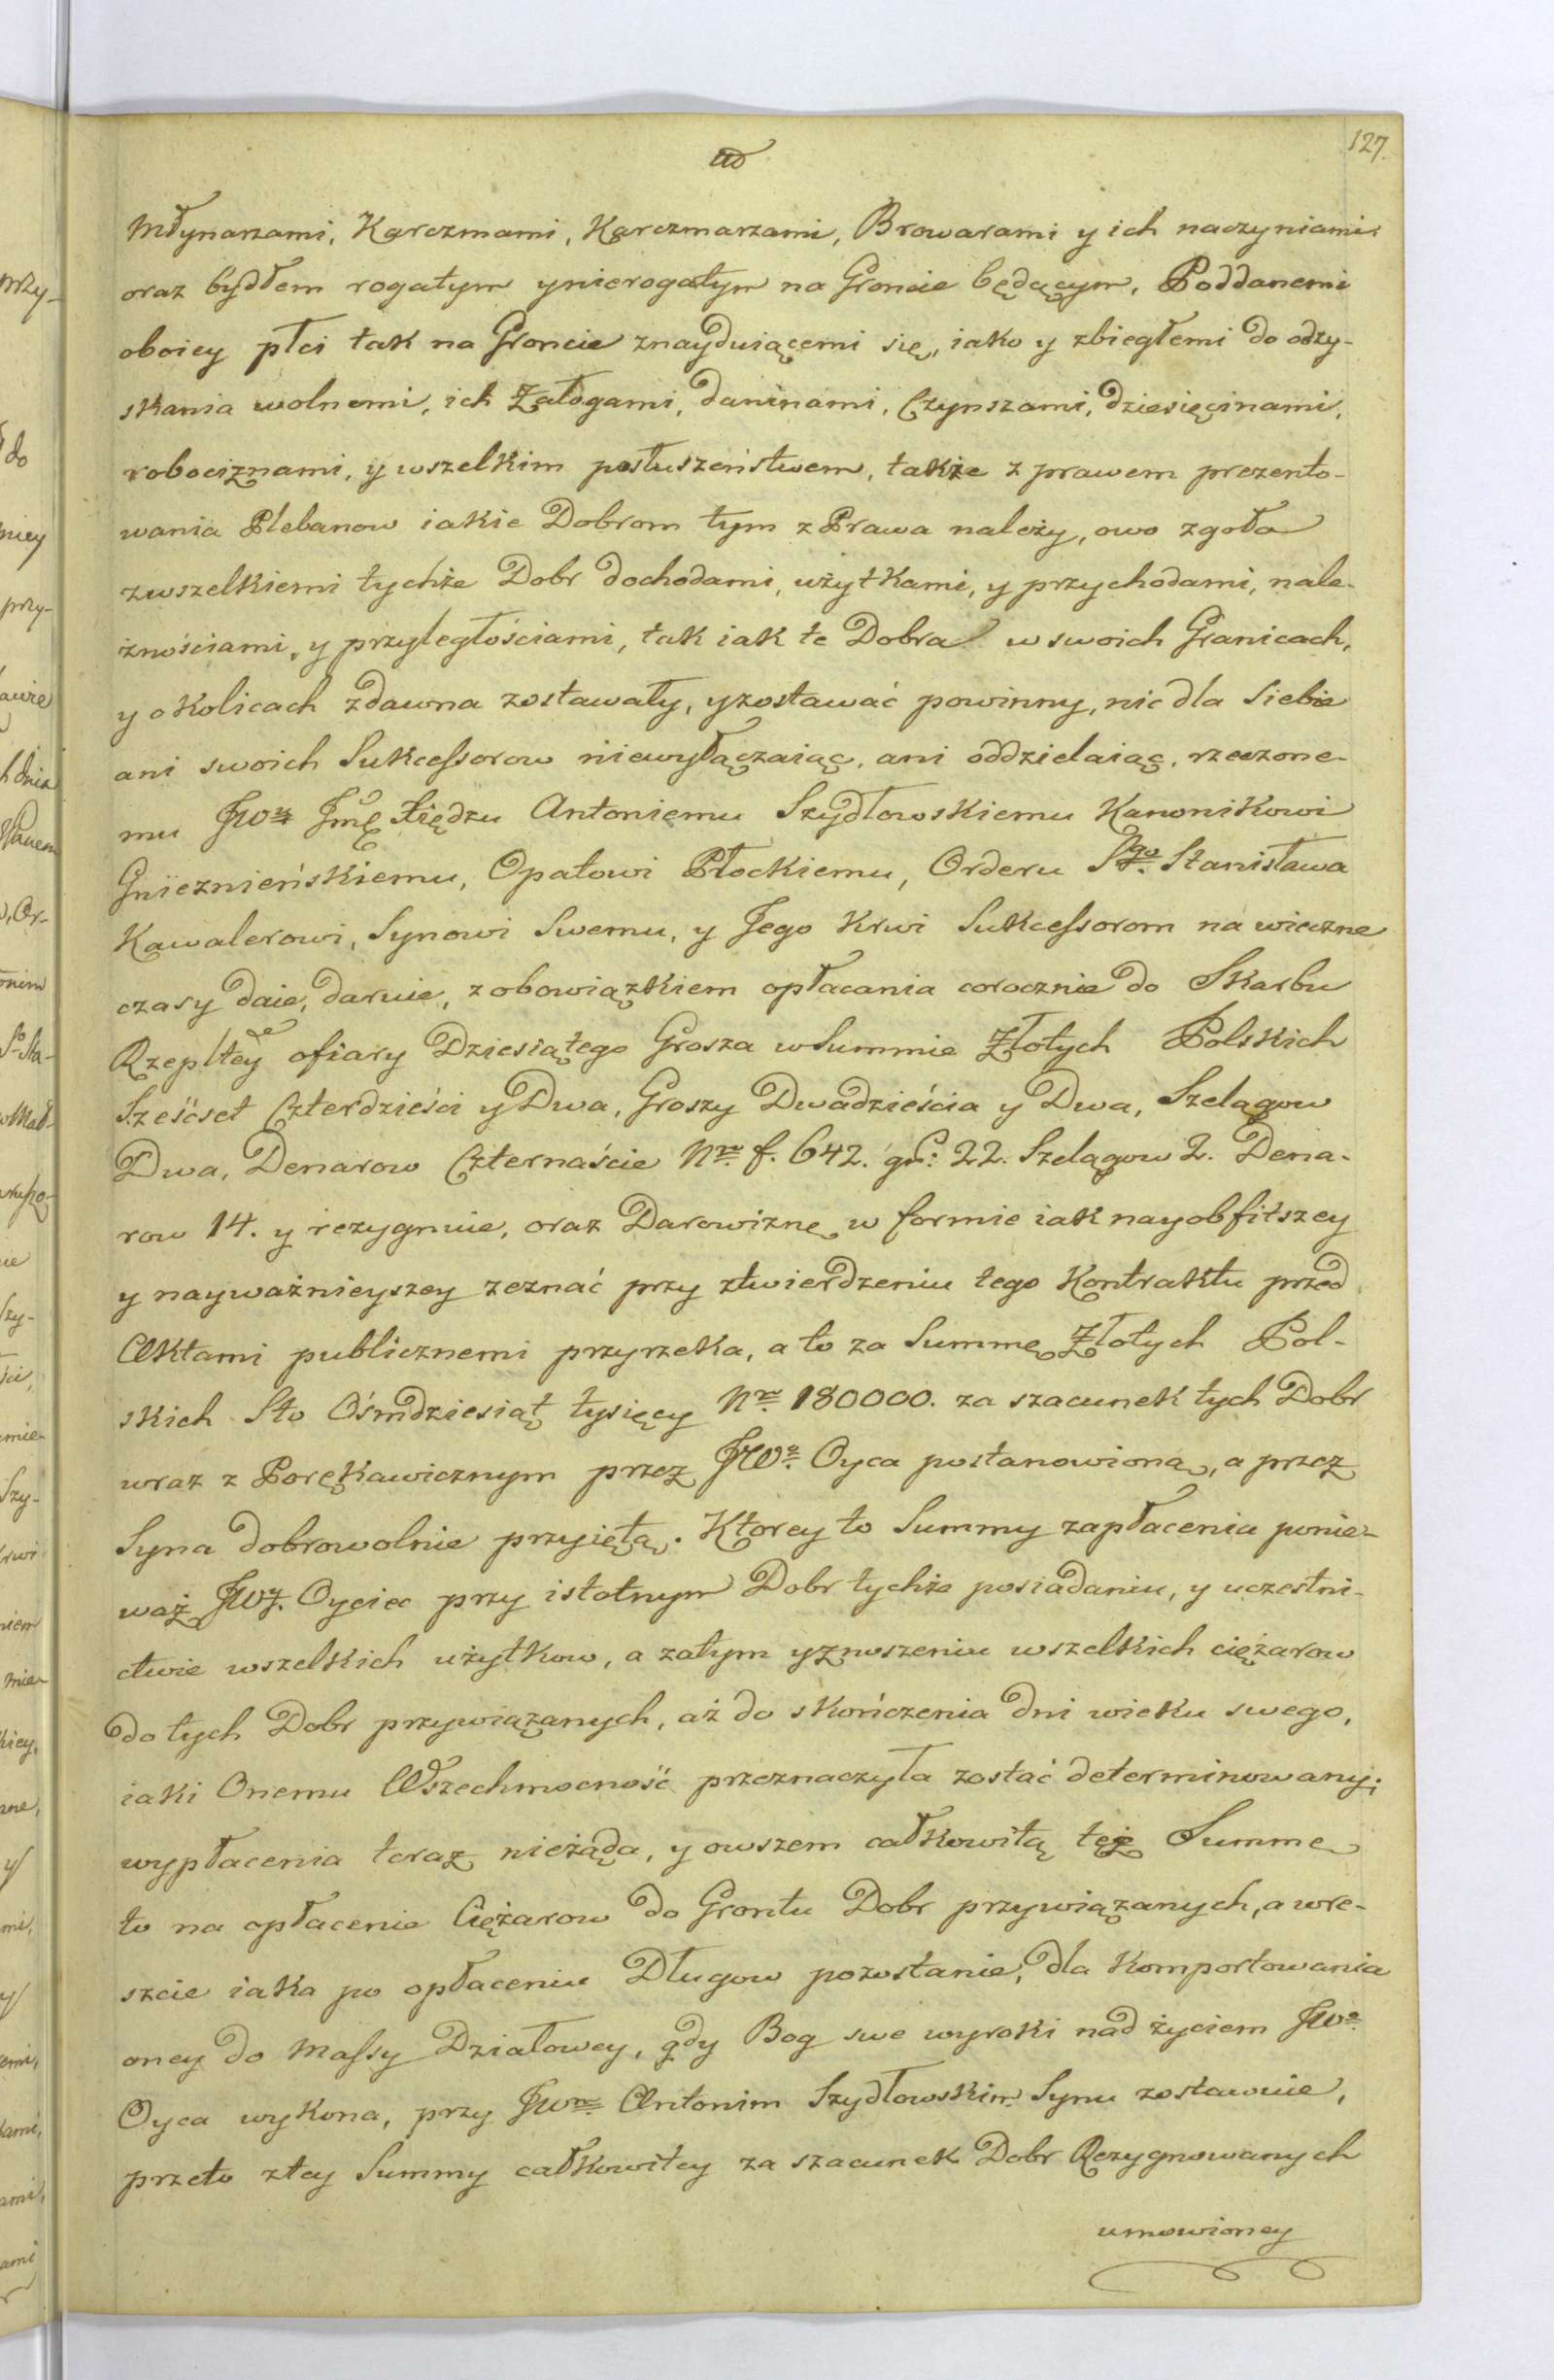 127.
Młynarzami, Karczmami, Karczmarzami, Browarami y ich naczyniami,
oraz bydłem rogatym y nierogatym na Groncie będącym, Poddanemi
oboiey płci tak na Groncie znayduiącemi się, iako y zbiegłemi do odzy-
skania wolnemi, ich Załogami, daninami, Czynszami, dziesięcinami,
robociznami, y wszelkim posłuszeństwem, także z prawem prezento-
wania Plebanow iakie Dobrom tym z Prawa należy, owo zgoła
zwszelkiemi tychże Dobr dochodami, użytkami, y przychodami, nale-
żnościami, y przyległościami, tak iak te Dobra w swoich Granicach,
y okolicach zdawna zostawały, y zostawać powinny, nic dla Siebie
ani swoich Sukcessorow niewyłączaiąc, ani oddzielaiąc, rzeczone-
mu JWu Jmć Xiędzu Antoniemu Szydłowskiemu Kanonikowi
Gnieznieńskiemu, Opatowi Płockiemu, Orderu Sgo Stanisława
Kawalerowi, Synowi Swemu, y Jego Krwi Sukcessorom na wieczne
czasy daie, daruie, z obowiązkiem opłacania corocznie do Skarbu
Rzepltey ofiary Dziesiątego Grosza w Summie Złotych Polskich
Sześćset Czterdzieści y Dwa, Groszy Dwadzieścia y Dwa, Szelągow
Dwa, Denarow Czternaście Nro f. 642. gr: 22. Szelągow 2. Dena-
row 14. y rezygnuie, oraz Darowiznę w formie iak nayobfitszey
y nayważnieyszey zeznać przy ztwierdzeniu tego Kontraktu przed
Aktami publicznemi przyrzeka, a to za Summę Złotych Pol-
skich Sto Ośmdziesiąt tysięcy Nro 180000. za szacunek tych Dobr
wraz z Porękawicznym przez JWo Oyca postanowioną, a przez
Syna dobrowolnie przyiętą. Ktorey to Summy zapłacenia ponie-
waż JWy. Oyciec przy istotnym Dobr tychże posiadaniu, y uczestni-
ctwie wszelkich użytkow, a zatym y znoszeniu wszelkich ciężarow
do tych Dobr przywiązanych, aż do skończenia dni wieku swego,
iaki Onemu Wszechmocność przeznaczyła zostać determinowany,
wypłacenia teraz nieżąda, y owszem całkowitą też Summe
to na opłacenie Ciężarow do Grontu Dobr przywiązanych, a wre-
szcie iaka po opłaceniu Długow pozostanie, dla komportowania
oney do Massy Działowey, gdy Bog swe wyroki nad życiem JWo
Oyca wykona, przy JWm Antonim Szydłowskim Synu zostawuie,
przeto ztey Summy całkowitey za szacunek Dobr Rezygnowanych
umowioney